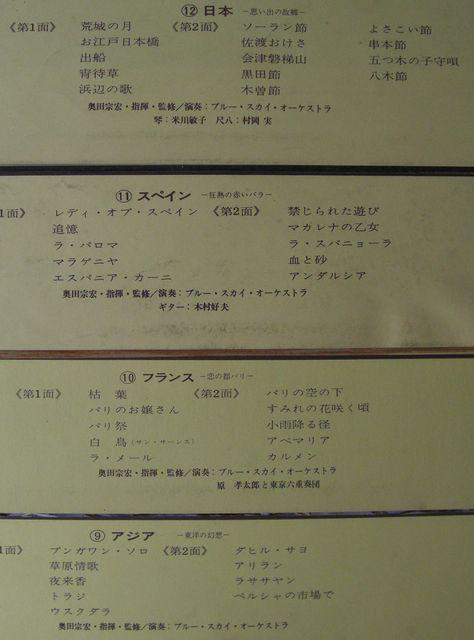 ⑫ 日本 －思い出の故郷－
《第1面》 荒城の月 《第2面》 ソーラン節 よさこい節
お江戸日本橋 佐渡おけさ 串本節
出船 会津磐梯山 五つ木の子守唄
宵待草 黒田節 八木節
浜辺の歌 木曽節
奥田宗宏・指揮・監修／演奏：ブルー・スカイ・オーケストラ
琴：米川敏子 尺八：村岡 実
⑪ スペイン －狂熱の赤いバラ－
1面》 レディ・オブ・スペイン 《第2面》 禁じられた遊び
追憶 マカレナの乙女
ラ・パロマ ラ・スパニョーラ
マラゲニヤ 血と砂
エスパニア・カーニ アンダルシア
奥田宗宏・指揮・監修／演奏：ブルー・スカイ・オーケストラ
ギター：木村好夫
⑩ フランス －恋の都パリ－
《第1面》 枯 葉 《第2面》 パリの空の下
パリのお嬢さん すみれの花咲く頃
パリ祭 小雨降る径
白 鳥（サン・サーンス） アベマリア
ラ・メール カルメン
奥田宗宏・指揮・監修／演奏：ブルー・スカイ・オーケストラ
原 孝太郎と東京六重奏団
⑨ アジア －東洋の幻想－
1面》 ブンガワン・ソロ 《第2面》 ダヒル・サヨ
草原情歌 アリラン
夜来香 ラササヤン
トラジ ペルシャの市場で
ウスクダラ
奥田宗宏・指揮・監修／演奏：ブルー・スカイ・オーケストラ